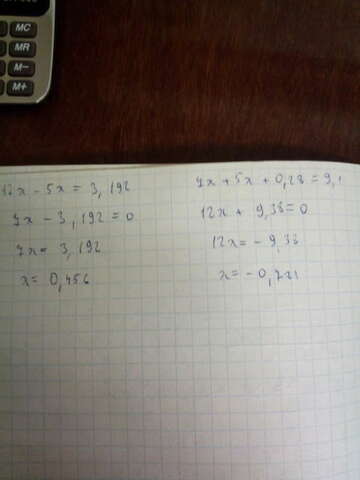 MC
MR
M-
M+
12x - 5x = 3,192
7x - 3,192 = 0
7x = 3,192
x = 0,456
7x + 5x + 0,28 = 9,1
12x + 9,38 = 0
12x = - 9,38
x = - 0,781